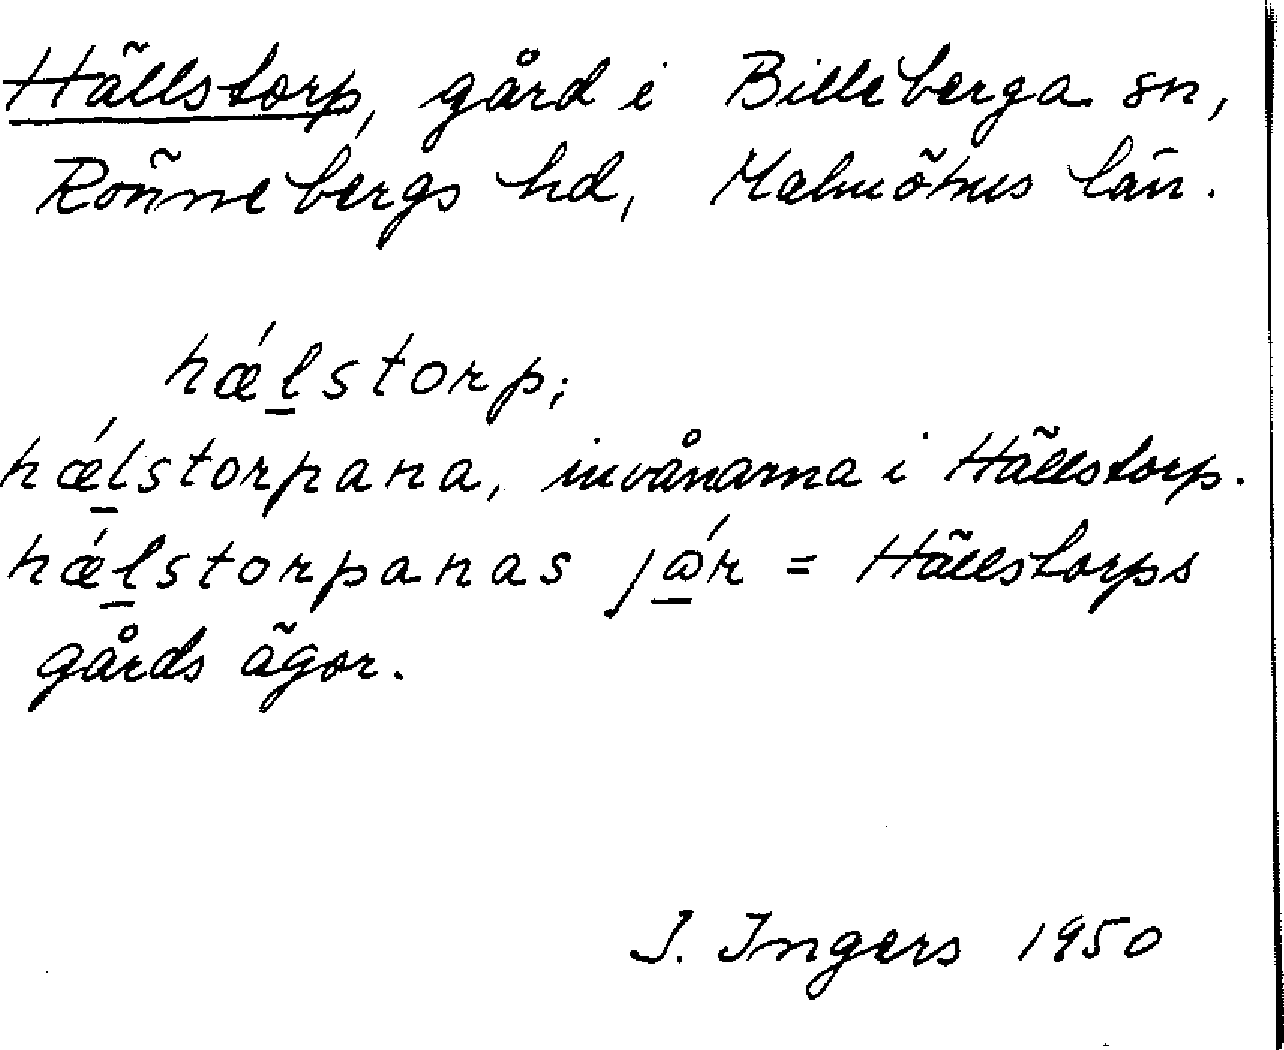 Hällstorp, gård i Billeberga sn,
Rönnebergs hd, Malmöhus län.
hǽl̲storp;
hǽl̲storpana, invånarna i Hällstorp.
hǽl̲storpanas jⱥ́r = Hällstorps
gårds ägor.
I. Ingers 1950